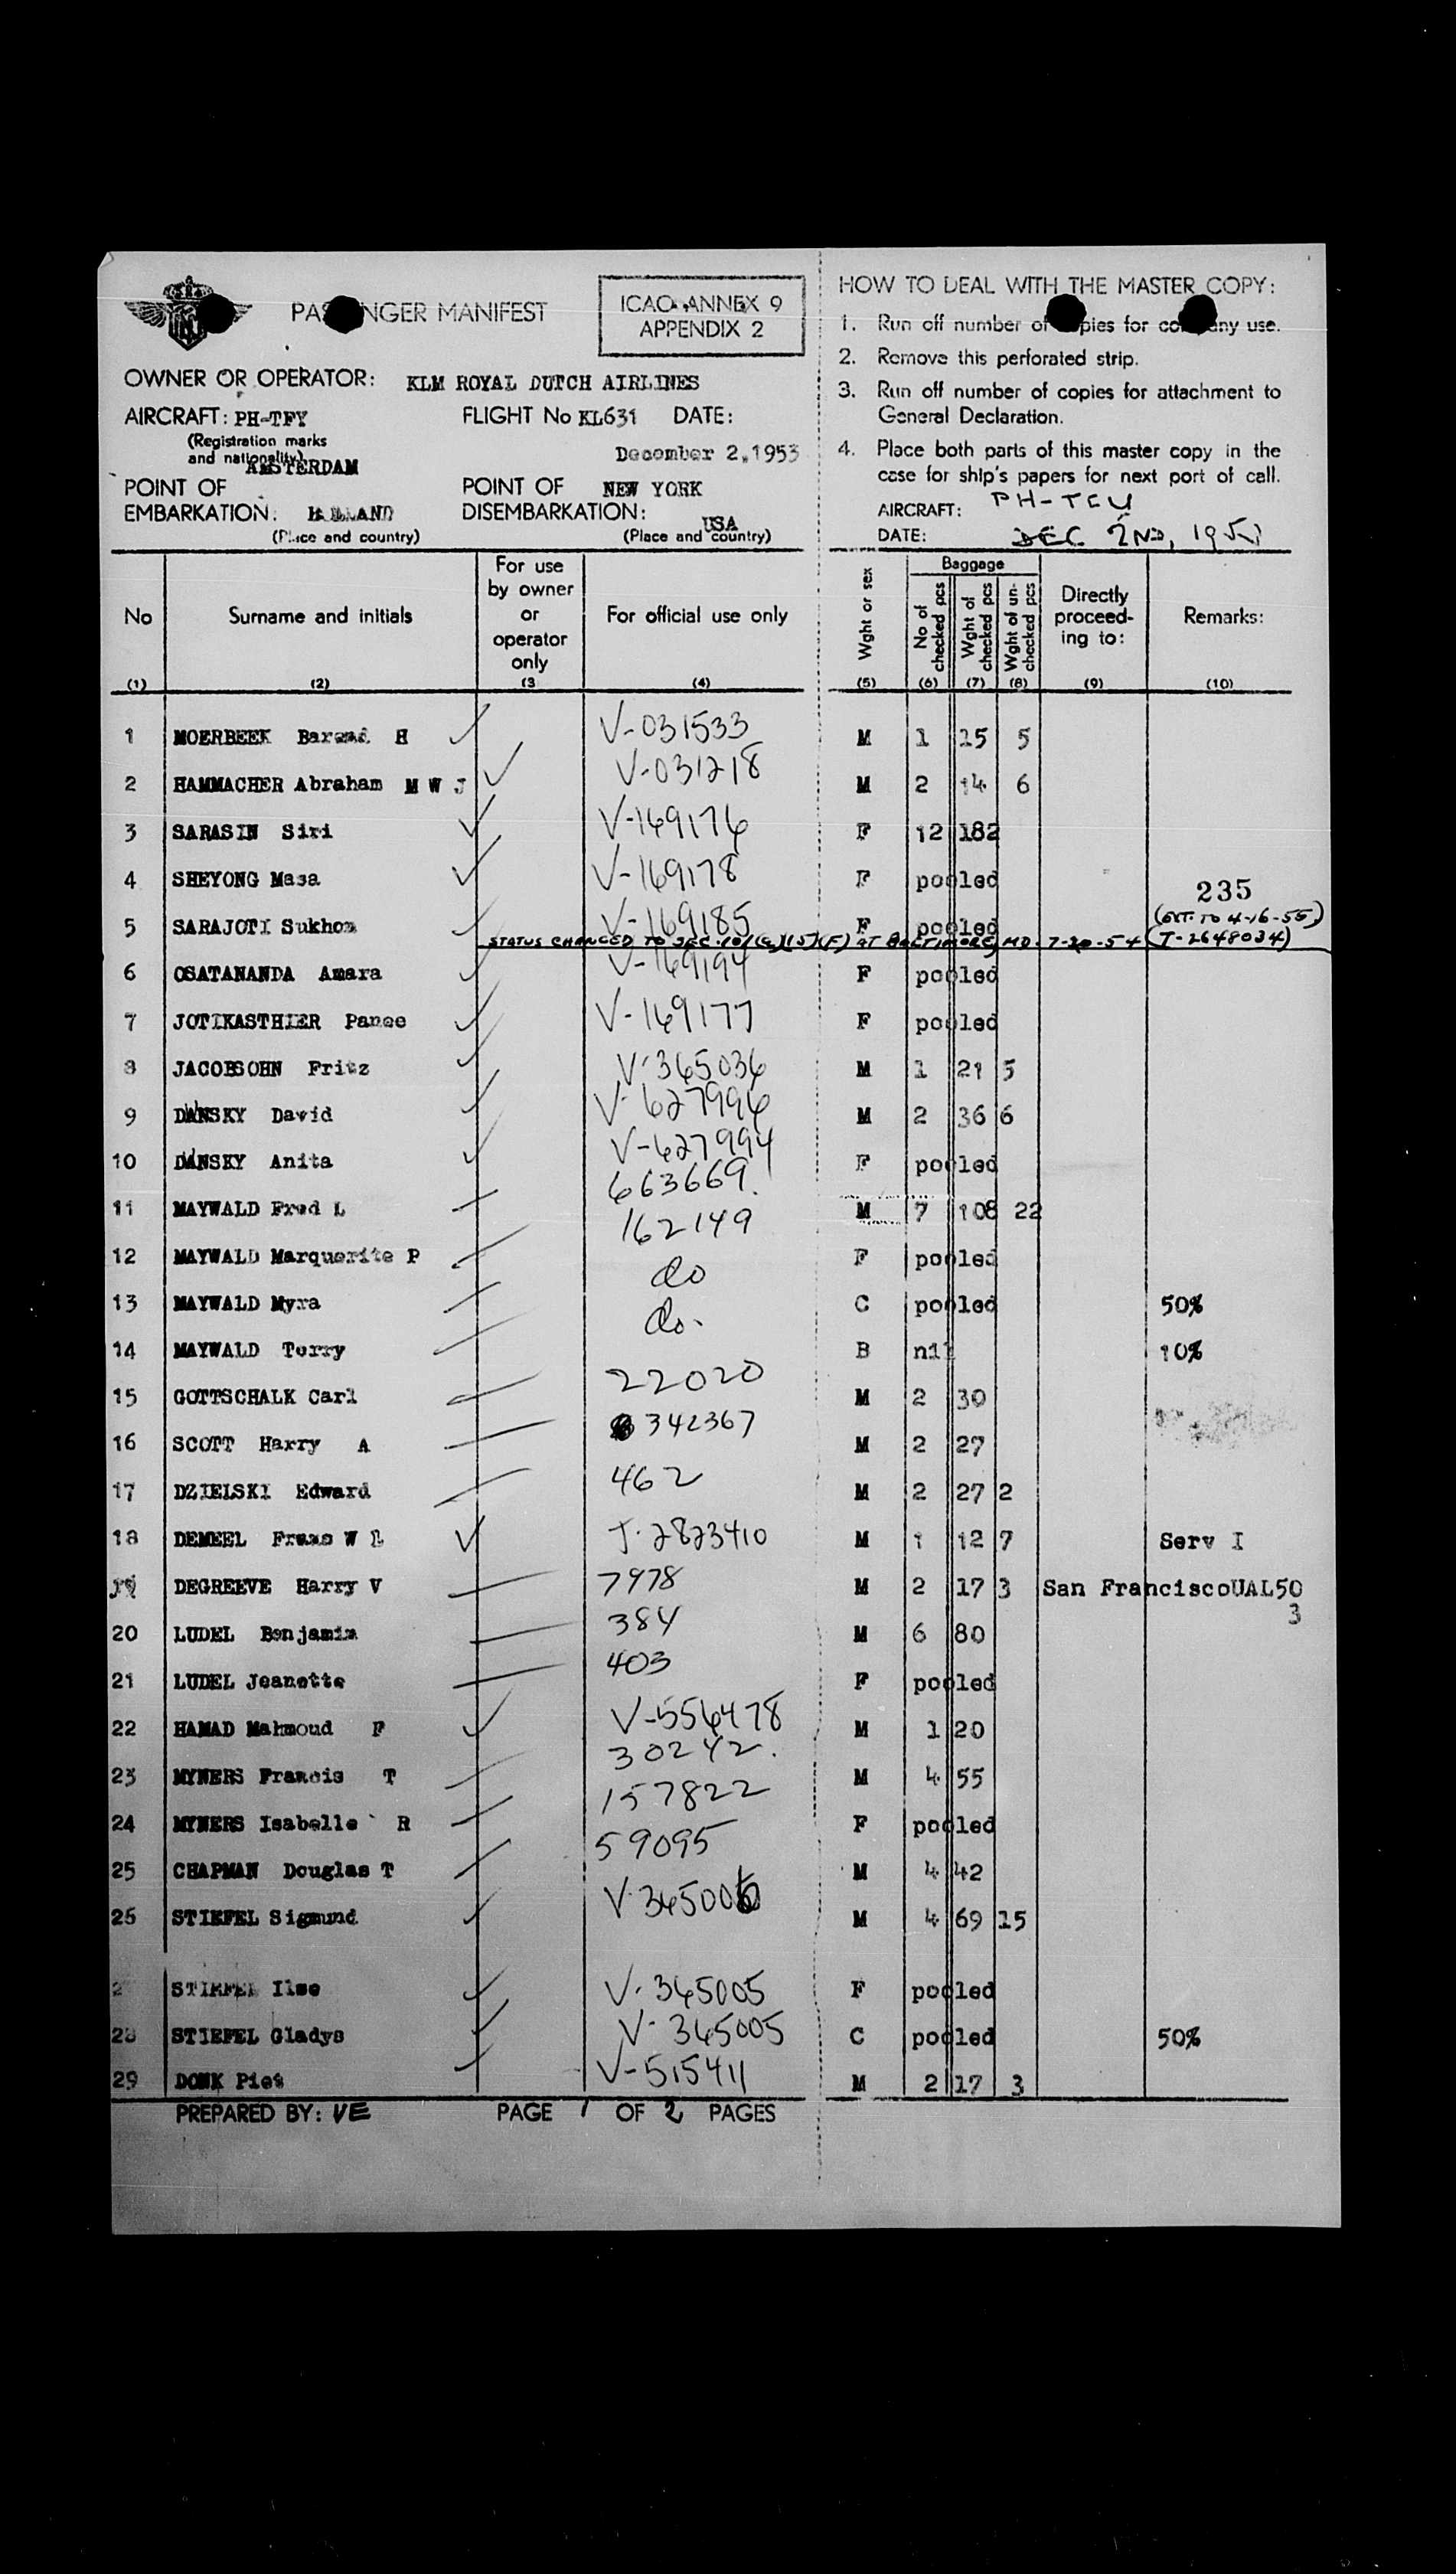 PASSENGER MANIFEST
ICAO ANNEX 9
APPENDIX 2
OWNER OR OPERATOR: KLM ROYAL DUTCH AIRLINES
AIRCRAFT: PH-TFY FLIGHT No KL631 DATE:
(Registration marks
and nationality) December 2, 1953
AMSTERDAM
POINT OF POINT OF NEW YORK
EMBARKATION: HOLLAND DISEMBARKATION: USA
(Place and country) (Place and country)
HOW TO DEAL WITH THE MASTER COPY:
1. Run off number of copies for company use.
2. Remove this perforated strip.
3. Run off number of copies for attachment to
General Declaration.
4. Place both parts of this master copy in the
case for ship's papers for next port of call.
AIRCRAFT: PH-TCU
DATE: DEC 2ND, 195
No Surname and initials For use by owner or operator only For official use only Wght or sex Baggage No of checked pcs Wght of checked pcs Wght of un-checked pcs Directly proceed-ing to: Remarks:
(1) (2) (3 (4) (5) (6) (7) (8) (9) (10)
1 MOERBEEK Barend H V-031533 M 1 15 5
2 HAMMACHER Abraham M W J V-031218 M 2 14 6
3 SARASIN Siri V-169176 F 12 182
4 SHEYONG Masa V-169178 F pooled 235
5 SARAJOTI Sukhom V-169185 F pooled (EXT. TO 4-16-55)
STATUS CHANGED TO SEC. 101(a)(15)(F) AT BALTIMORE, MD. 7-20-54 (T-2648034)
6 OSATANANDA Amara V-169194 F pooled
7 JOTIKASTHIER Panee V-169177 F pooled
8 JACOBSOHN Fritz V-365036 M 1 21 5
9 DANSKY David V-627996 M 2 36 6
10 DANSKY Anita V-627994 F pooled
11 MAYWALD Fred L 663669. M 7 108 22
12 MAYWALD Marquerite P 162149 F pooled
13 MAYWALD Myra do C pooled 50%
14 MAYWALD Terry do. B nil 10%
15 GOTTSCHALK Carl 22020 M 2 30
16 SCOTT Harry A 342367 M 2 27
17 DZIELSKI Edward 462 M 2 27 2
18 DEMEEL Frans W L T-2823410 M 1 12 7 Serv I
19 DEGREEVE Harry V 7978 M 2 17 3 San FranciscoUAL50
3
20 LUDEL Benjamin 384 M 6 80
21 LUDEL Jeanette 403 F pooled
22 HAMAD Mahmoud F V-556478 M 1 20
23 MYNERS Francis T 30242. M 4 55
24 MYNERS Isabelle R 157822 F pooled
25 CHAPMAN Douglas T 59095 M 4 42
26 STIEFEL Sigmund V-365006 M 4 69 15
2 STIEFEL Ilse V-365005 F pooled
28 STIEFEL Gladys V-365005 C pooled 50%
29 DONK Piet V-515411 M 2 17 3
PREPARED BY: VE PAGE 1 OF 2 PAGES